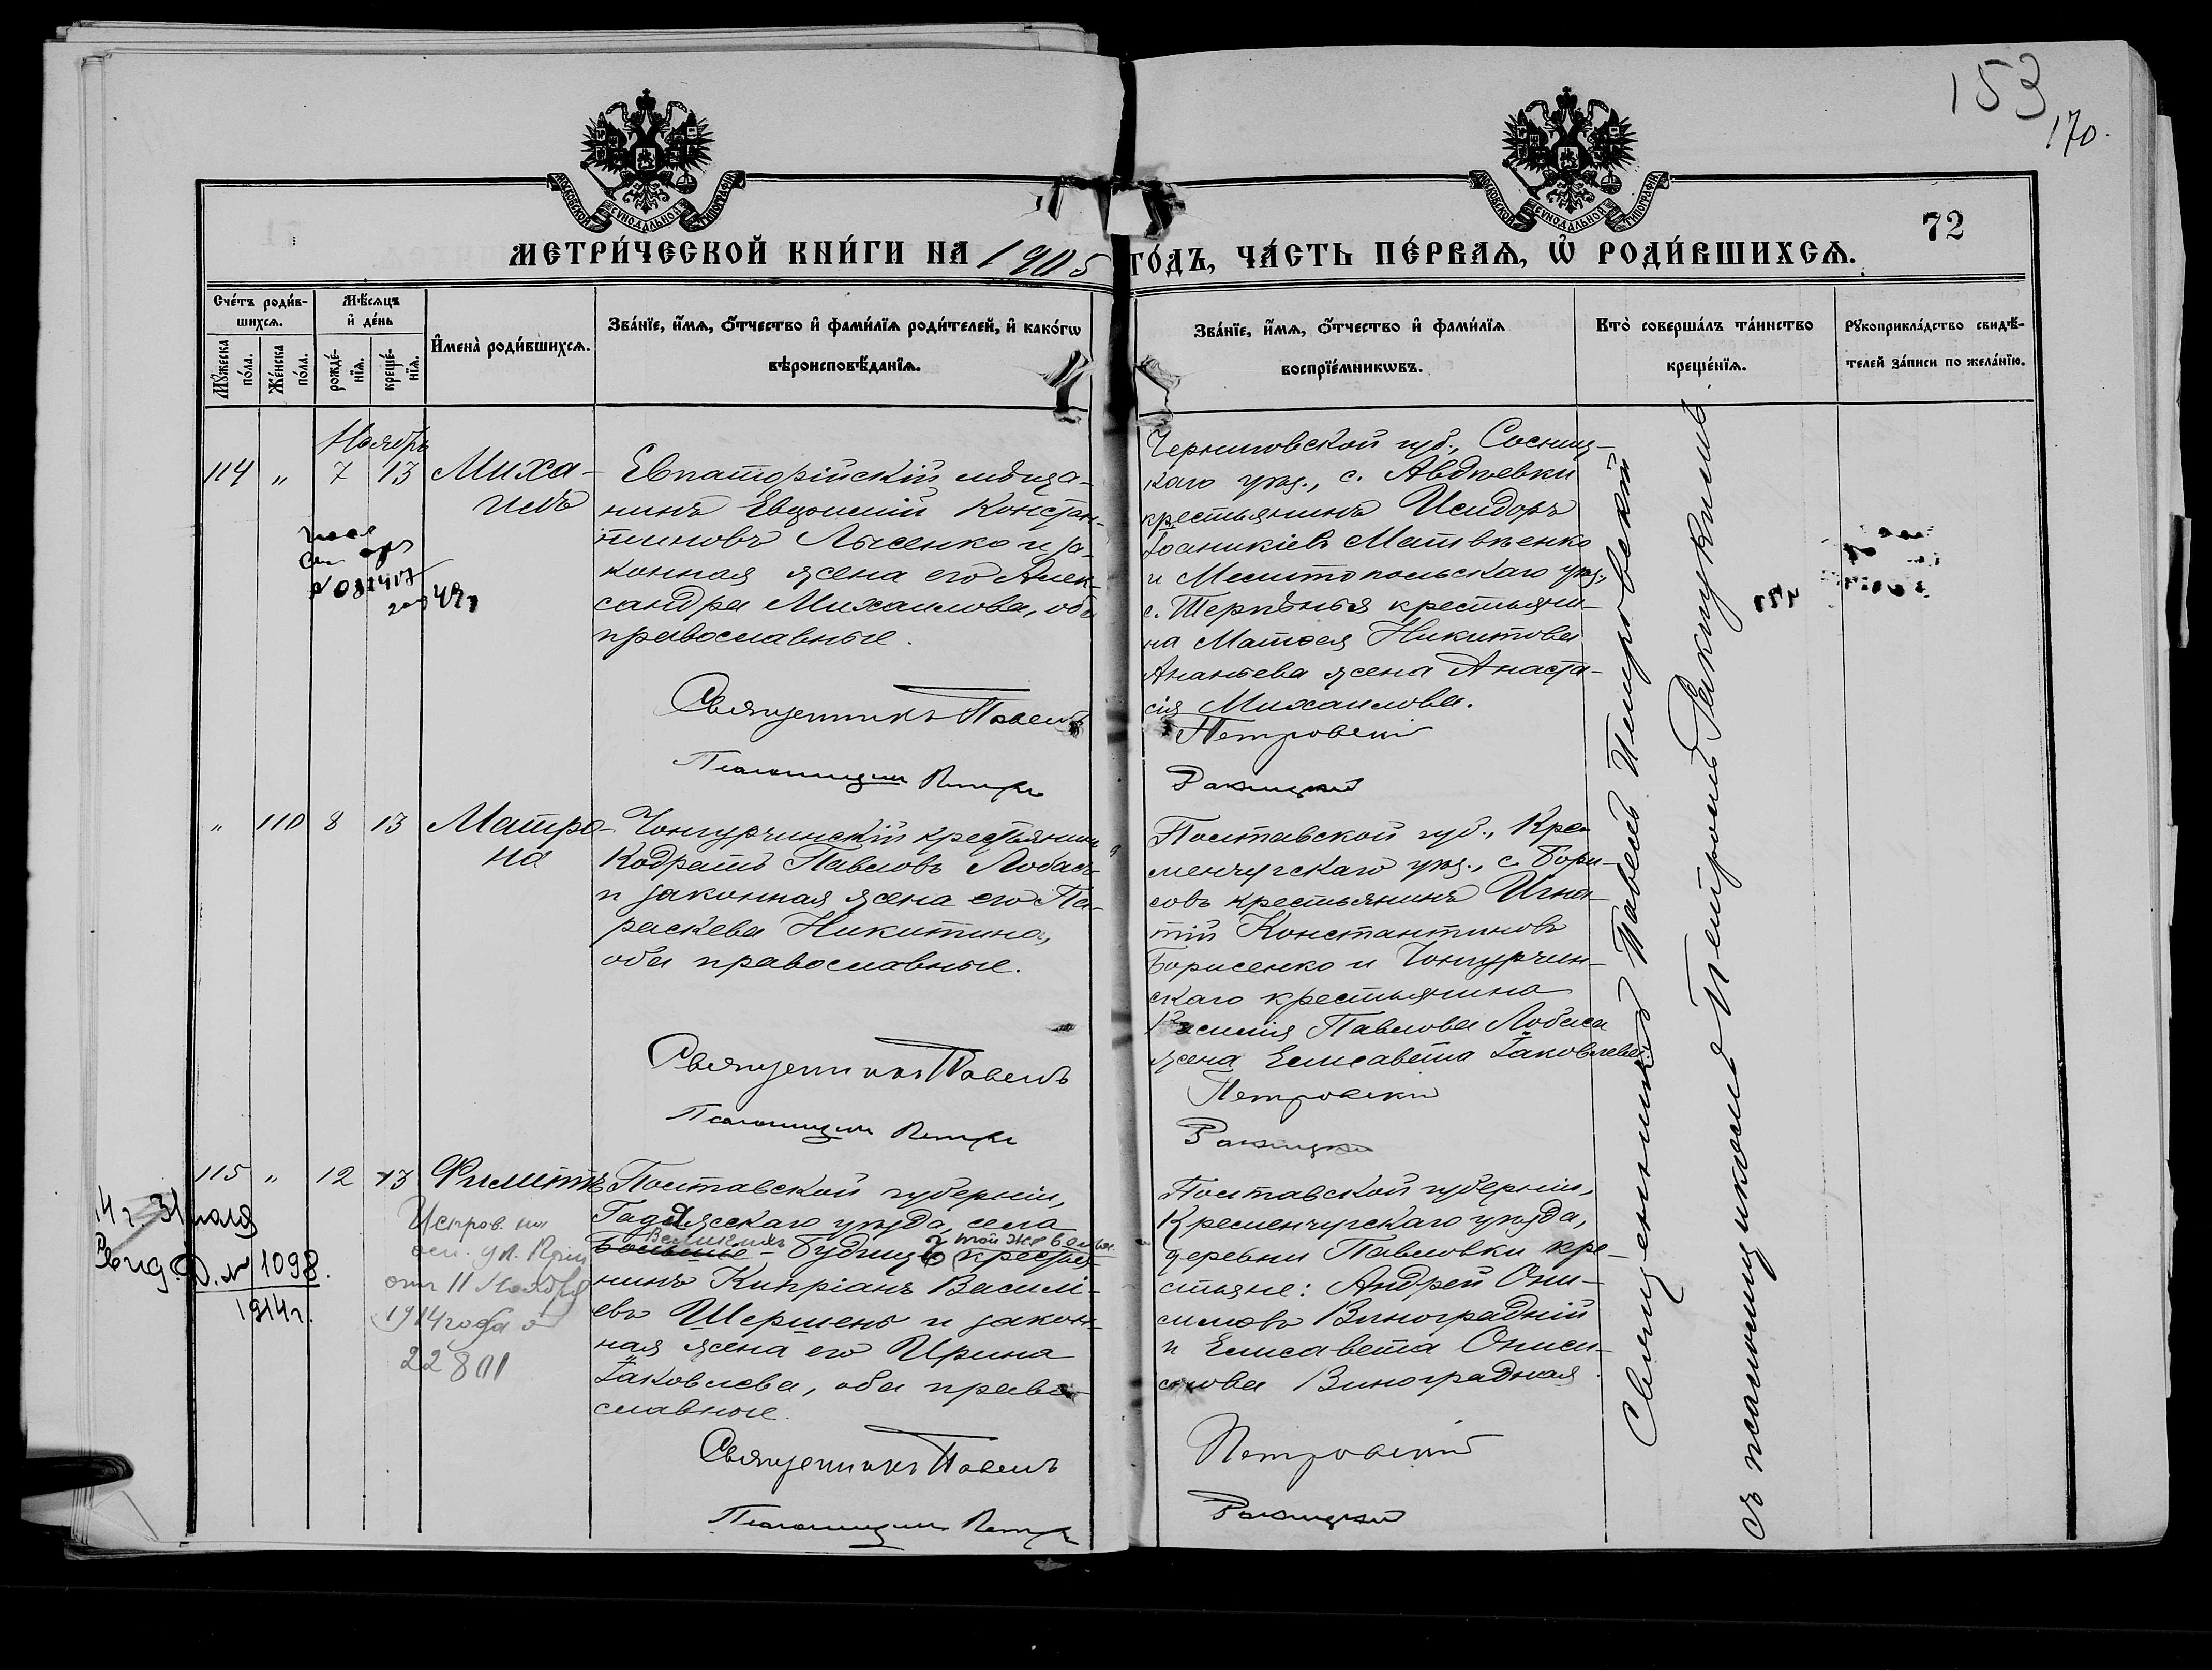 153
170.
МОСКОВСКОЙ СУНОДАЛЬНОЙ ТИПОГРАФІИ
МОСКОВСКОЙ СУНОДАЛЬНОЙ ТИПОГРАФІИ
72
МЕТРИ́ЧЕСКОЙ КНИ́ГИ НА 1905 ГО́ДЪ, ЧА́СТЬ ПЕ́РВАѦ, Ѡ҆ РОДИ́ВШИХСѦ.
Сче́тъ роди́в-
шихсѧ.
Мꙋ́жеска по́ла.
Же́нска по́ла.
Мѣ́сѧцъ и҆ де́нь
рожде́-нїѧ.
креще́-нїѧ.
И҆мена̀ роди́вшихсѧ.
Зва́нїе, и҆́мѧ, ѻ҆́тчество и҆ фами́лїѧ роди́телей, и҆ како́гѡ
вѣроисповѣ́данїѧ.
Зва́нїе, и҆́мѧ, ѻ҆́тчество и҆ фами́лїѧ
воспрїе́мникѡвъ.
Кто̀ соверша́лъ та́инство
креще́нїѧ.
Рꙋкоприкла́дство свидѣ́-
телей за́писи по жела́нїю.
Ноябрь
114 " 7 13 Миха-
илъ
Евпаторійскій мѣща-
нинъ Евдокимъ Констан-
тиновъ Лысенко и за-
конная жена его Алек-
сандра Михаилова, оба
православные.
Священникъ Павелъ
Псаломщикъ Петръ
Черниговской губ., Сосниц-
каго уѣзд., с. Авдѣевки
крестьянинъ Исидоръ
Іоанникіевъ Матвѣенко
и Мелитопольскаго уѣзд.,
с. Терпѣнья крестьяни-
на Матѳея Никитова
Ананьева жена Анаста-
сія Михаилова.
Петровскій
Ракицкій
" 110 8 13 Матро-
на
Чонгурчинскій крестьянинъ
Кодратъ Павловъ Лобасъ
и законная жена его Па-
раскева Никитина,
оба православные.
Священникъ Павелъ
Псаломщикъ Петръ
Полтавской губ., Кре-
менчугскаго уѣзд., с. Бори-
совъ крестьянинъ Игна-
тій Константиновъ
Борисенко и Чонгурчин-
скаго крестьянина
Василія Павлова Лобаса
жена Елисавета Іаковлева.
Петровскій
Ракицкій
115 " 12 13 Филиппъ
Полтавской губерніи,
Гадячскаго уѣзда, села
Великихъ той же волости
Большіе-Будищъ крестья-
нинъ Кипріанъ Василі-
евъ Шершень и закон-
ная жена его Ирина
Іаковлева, оба право-
славные.
Священникъ Павелъ
Псаломщикъ Петръ
Полтавской губерніи,
Кременчугскаго уѣзда,
деревни Павловки кре-
стьяне: Андрей Они-
симовъ Виноградній
и Елисавета Ониси-
мова Виноградная.
Петровскій
Ракицкій
14 г. 31 мая
№ 1098.
1914 г.
Испров. на
от 11 Ноября
1914 года
22801
Священникъ Павелъ Петровскій
съ псаломщикомъ Петромъ Ракицкимъ